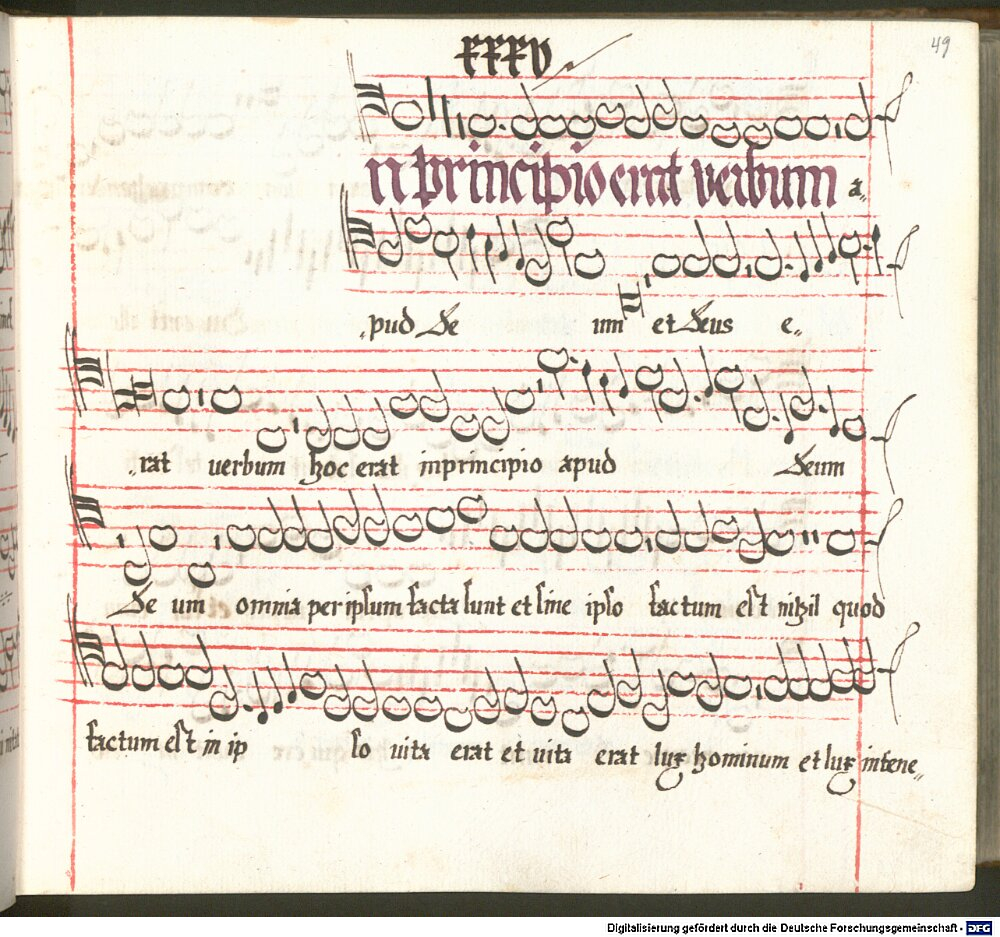 xxxv
49
n principio erat verbum a„
„pud De um et Deus e„
„rat uerbum hoc erat inprincipio apud Deum
De um omnia per ipsum facta sunt et sine ipso factum est nihil quod
factum est in ip so uita erat et uita erat lux hominum et lux intene„
Digitalisierung gefördert durch die Deutsche Forschungsgemeinschaft - DFG